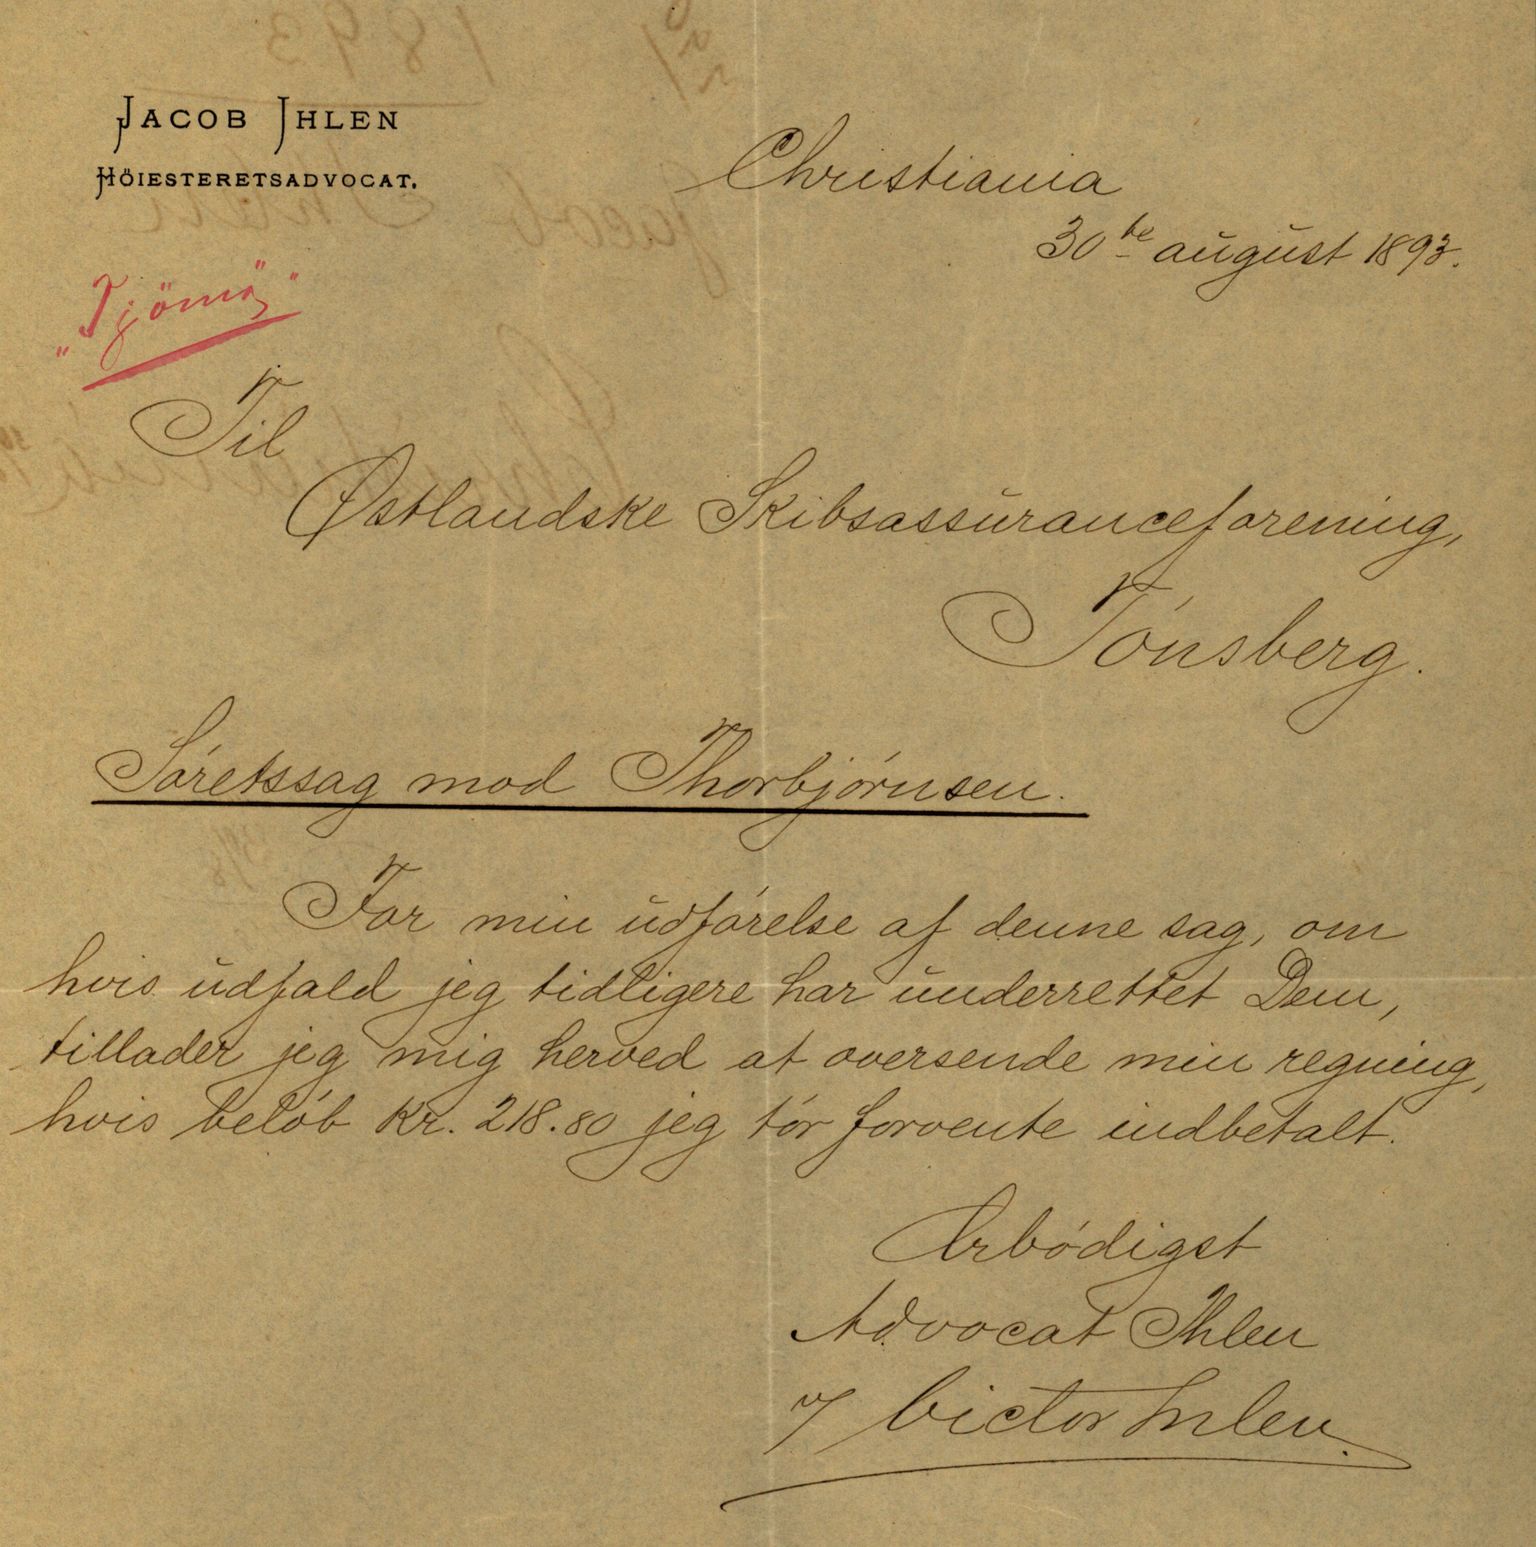 JACOB IHLEN
HÖIESTERETSADVOCAT.
Christiania
30te august 1893.
"Tjömö"
Til
Østlandske Skibsassuranceforening,
Tónsberg.
Sóretssag mod Thorbjórnsen.
For min udfórelse af denne sag, om
hvis udfald jeg tidligere har underrettet Dem,
tillader jeg mig herved at oversende min regning,
hvis belób kr. 218.80 jeg tór forvente indbetalt.
Ærbódigst
Advocat Ihlen
v/ Victor Ihlen.